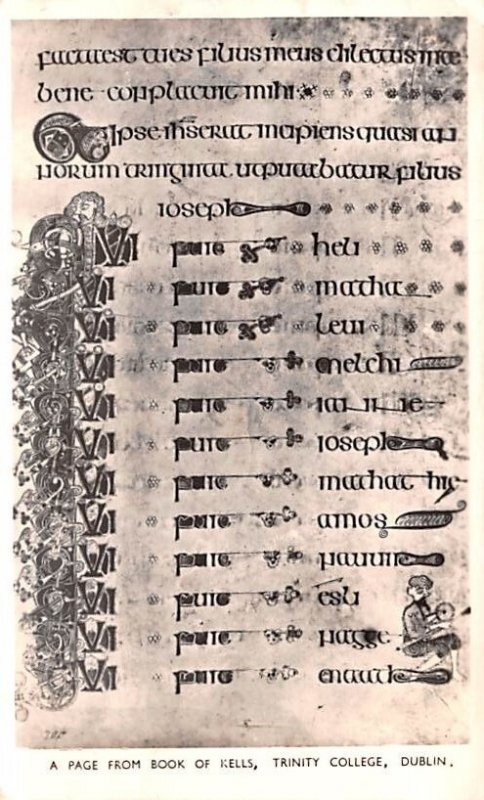 facta est tu es filius meus dilectus in te
bene conplacuit mihi
Et ipse ihs erat incipiens quasi an
norum triginta ut putabatur filius
ioseph
QUI fuit heli
QUI fuit matha
QUI fuit leui
QUI fuit melchi
QUI fuit iannae
QUI fuit ioseph
QUI fuit mathathie
QUI fuit amos
QUI fuit nauum
QUI fuit esli
QUI fuit nagge
QUI fuit
A PAGE FROM BOOK OF KELLS, TRINITY COLLEGE, DUBLIN.